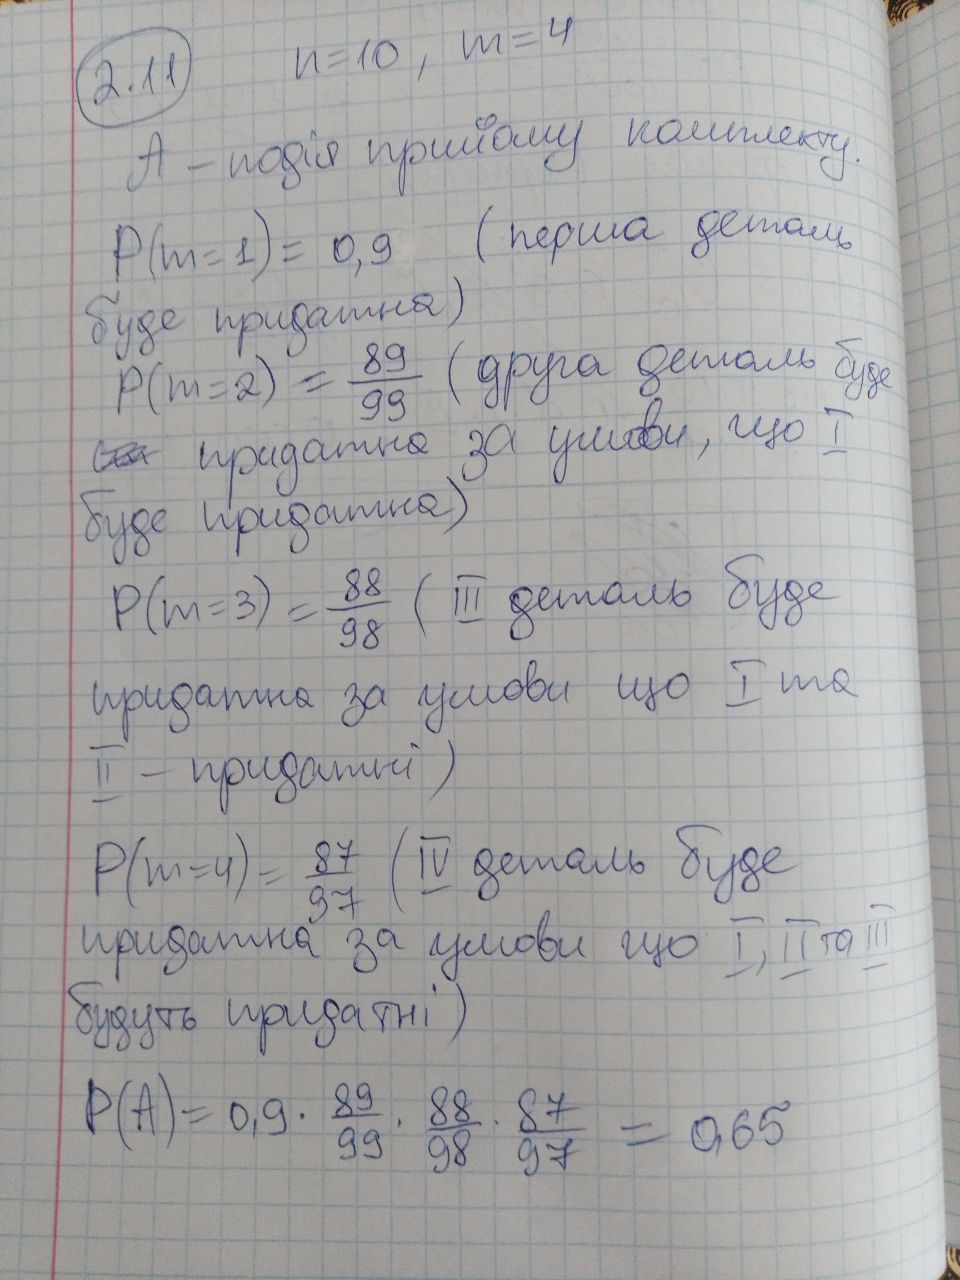 2.11 n=10, m=4
A – подія прийому комплекту.
P(m=1)= 0,9 (перша деталь
буде придатна)
P(m=2) = 89/99 (друга деталь буде
придатна за умови, що I
буде придатна)
P(m=3) = 88/98 (III деталь буде
придатна за умови що I та
II – придатні)
P(m=4)= 87/97 (IV деталь буде
придатна за умови що I, II та III
будуть придатні)
P(A)= 0,9 · 89/99 · 88/98 · 87/97 = 0,65